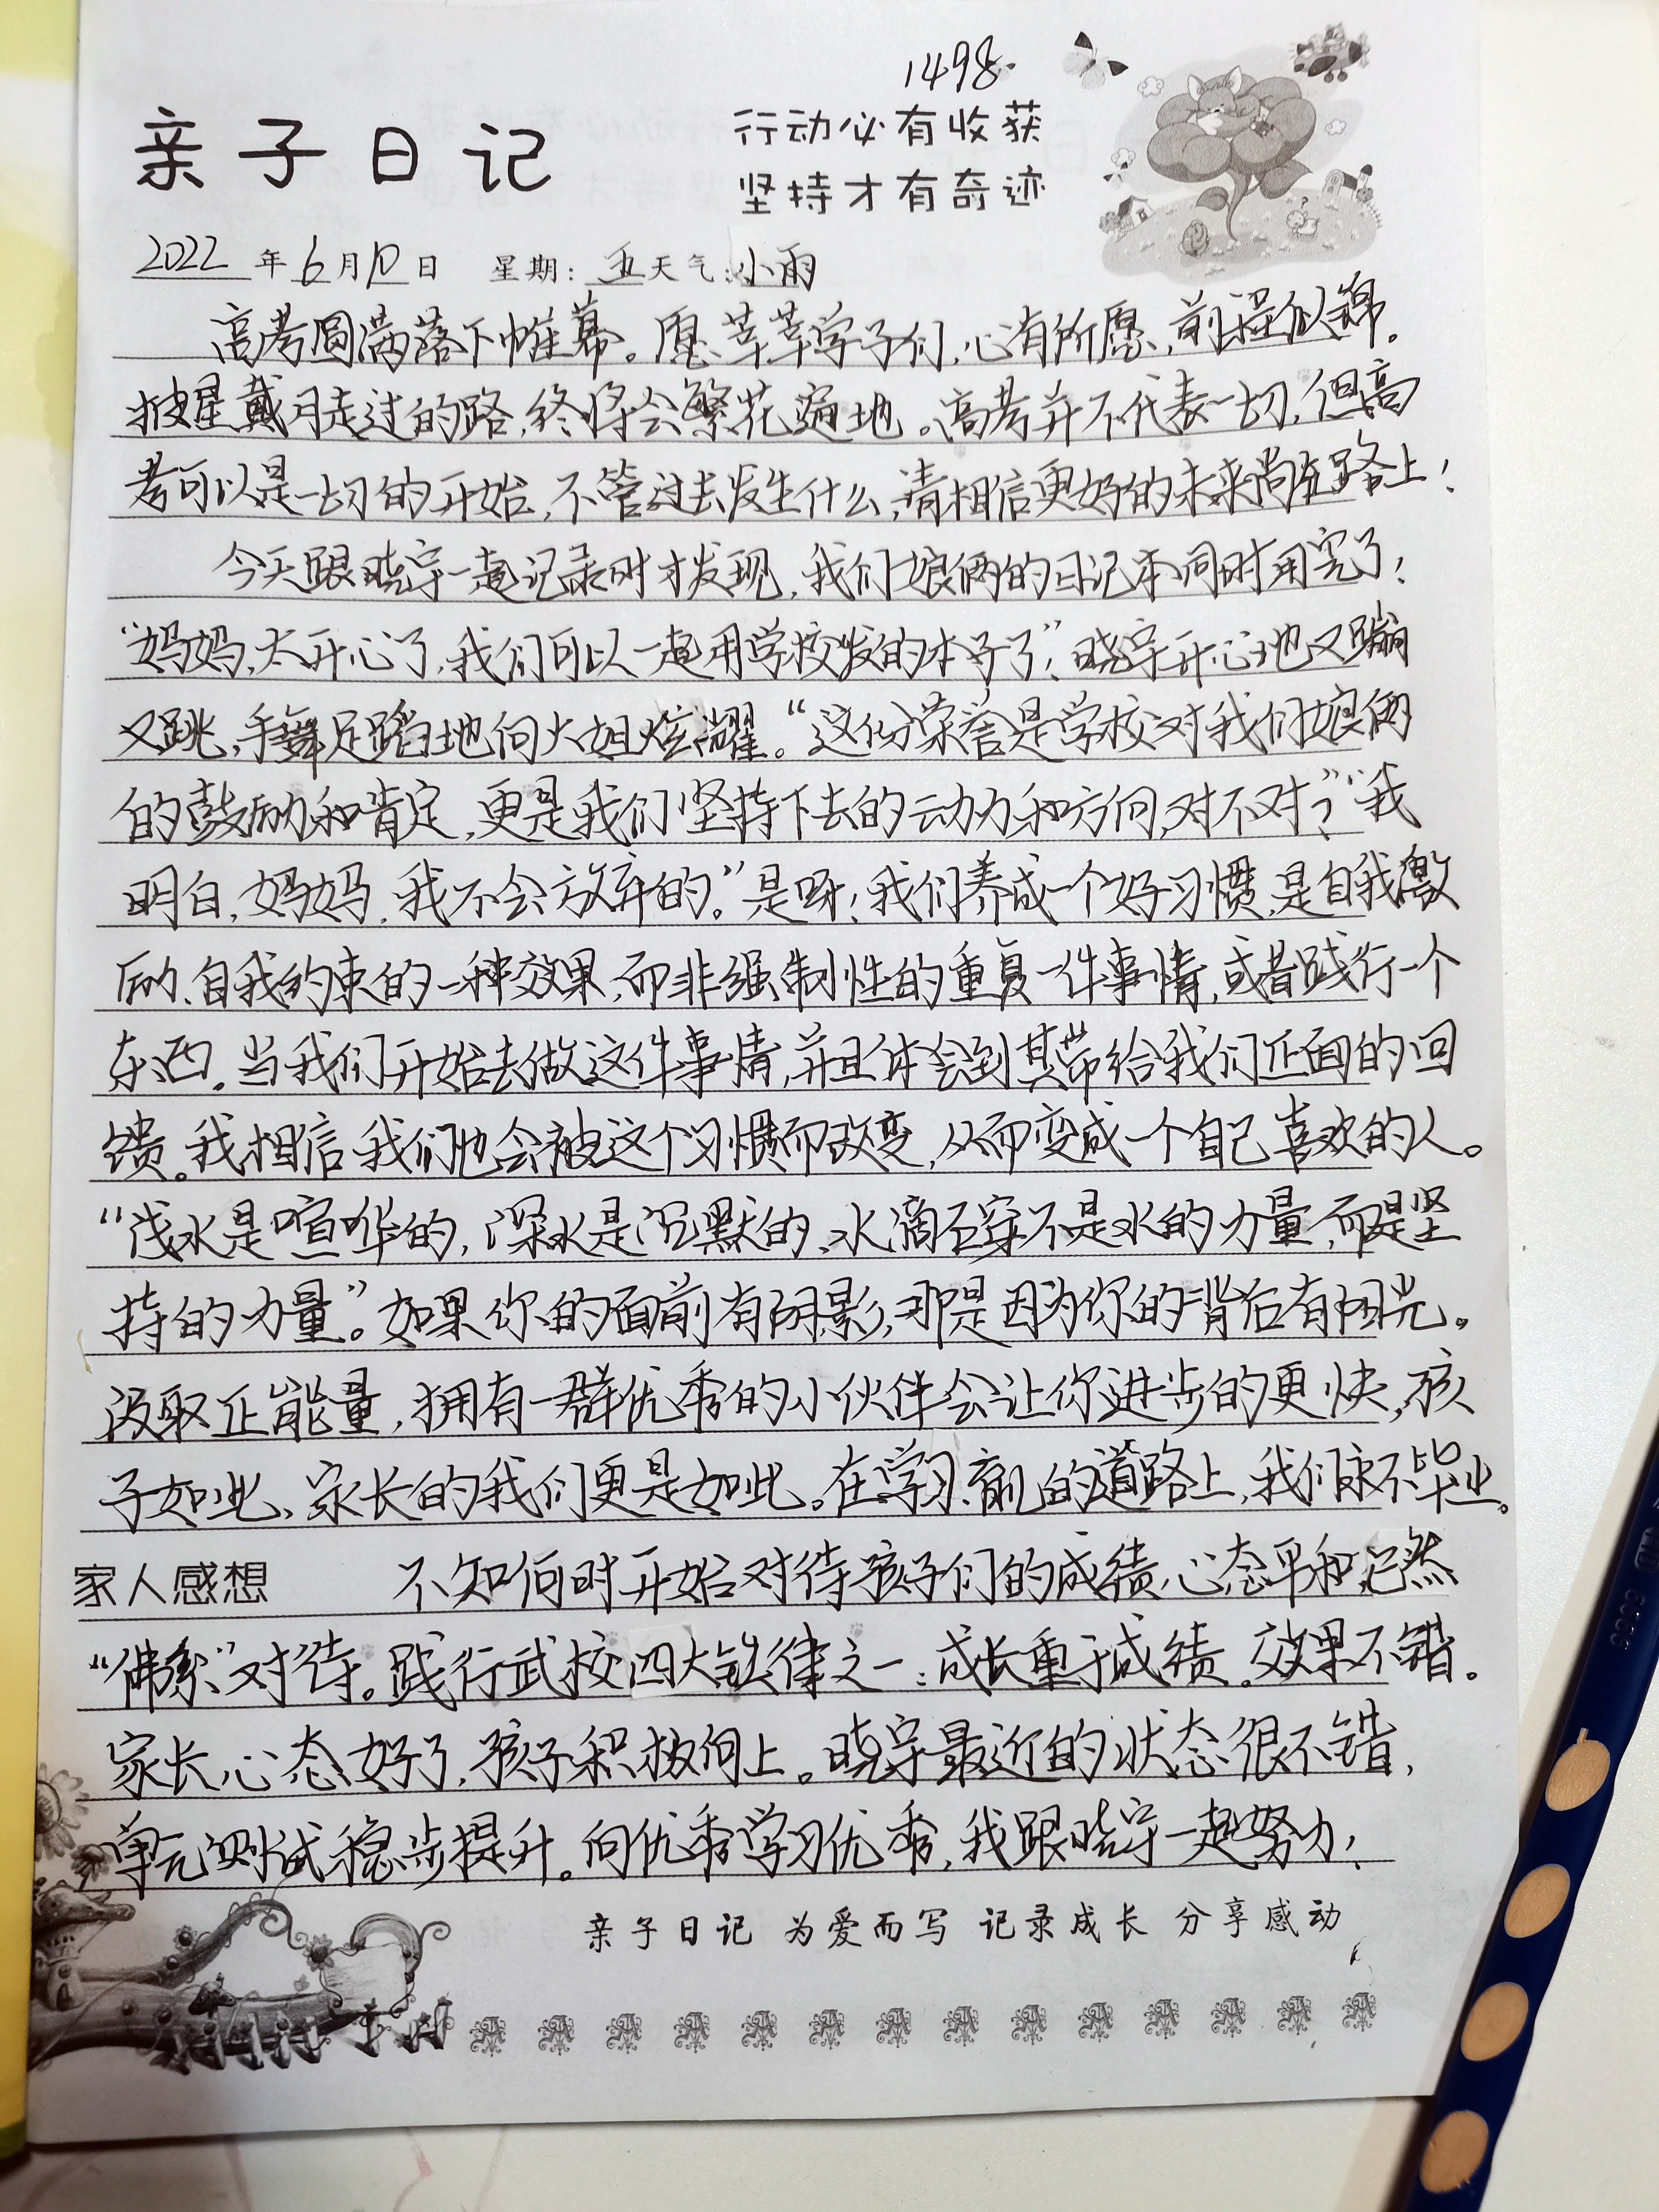 1498.
亲子日记
行动必有收获
坚持才有奇迹
2022年6月10日 星期:五天气:小雨
高考圆满落下帷幕。愿莘莘学子们,心有所愿,前程似锦。
披星戴月走过的路,终将会繁花遍地。高考并不代表一切,但高
考可以是一切的开始,不管过去发生什么,请相信更好的未来尚在路上!
今天跟晓宇一起记录时才发现,我们娘俩的日记本同时用完了!
“妈妈,太开心了,我们可以一起用学校发的本子了!”晓宇开心地又蹦
又跳,手舞足蹈地向大姐炫耀。“这份荣誉是学校对我们娘俩
的鼓励和肯定,更是我们坚持下去的动力和方向,对不对?”“我
明白,妈妈,我不会放弃的。”是呀!我们养成一个好习惯,是自我激
励、自我约束的一种效果,而非强制性的重复一件事情,或者践行一个
东西。当我们开始去做这件事情,并且体会到其带给我们正面的回
馈。我相信我们也会被这个习惯而改变,从而变成一个自己喜欢的人。
“浅水是喧哗的,深水是沉默的、水滴石穿不是水的力量,而是坚
持的力量”。如果你的面前有阴影,那是因为你的背后有阳光。
汲取正能量,拥有一群优秀的小伙伴会让你进步的更快,孩
子如此、家长的我们更是如此。在学习、育儿的道路上,我们永不毕业。
家人感想 不知何时开始对待孩子们的成绩,心态平和,已然
“佛系”对待。践行武校四大铁律之一:成长重于成绩。效果不错。
家长心态好了,孩子积极向上。晓宇最近的状态很不错,
单元测试稳步提升。向优秀学习优秀,我跟晓宇一起努力!
亲子日记 为爱而写 记录成长 分享感动